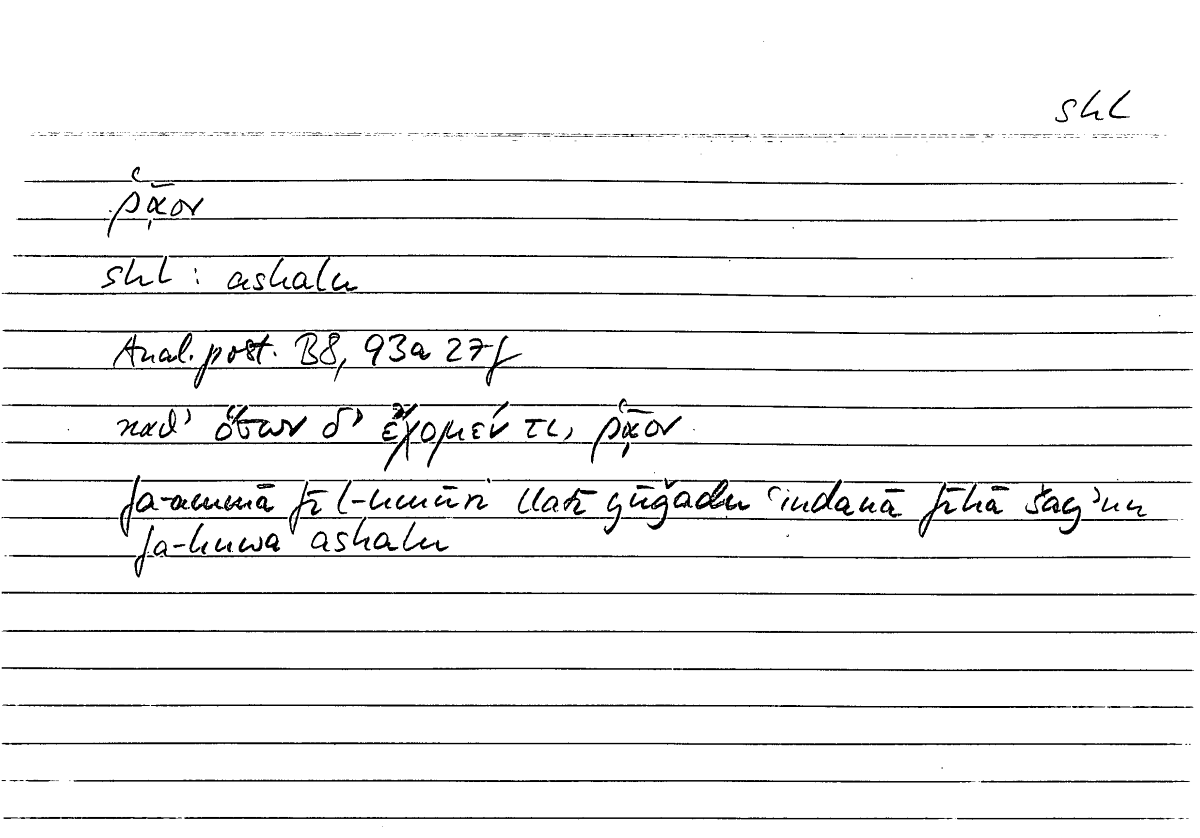 shl
ῥᾷον
shl : ashalu
Anal. post. B8, 93a 27f
καθ' ὅσον δ' ἔχομέν τι, ῥᾷον
fa-ammā fī l-umūri llatī yūǧadu ʿindanā fīhā šayʾun
fa-huwa ashalu